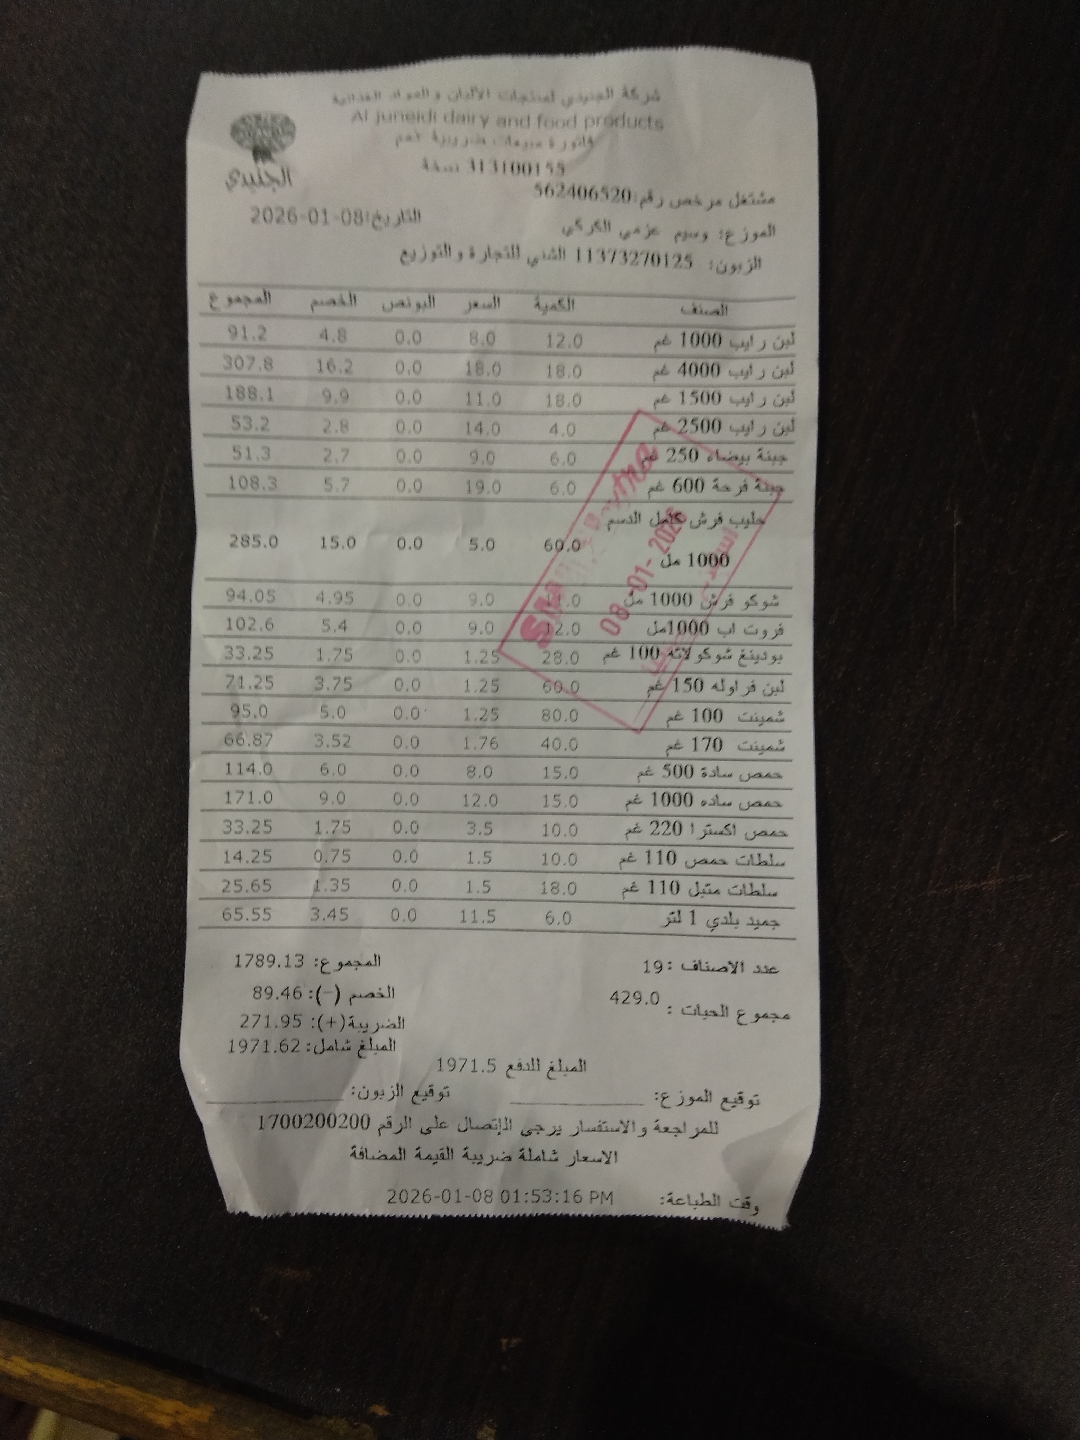 شركة الجنيدي لمنتجات الألبان والمواد الغذائية
Al Juneidi dairy and food products
فاتورة مبيعات ضريبية
313100155 نسخة
الجنيدي
مشتغل مرخص رقم:562406520
الموزع: وسيم عزمي الكركي التاريخ:2026-01-08
الزبون: 11373270125 الشني للتجارة والتوزيع
الصنف الكمية السعر البونص الخصم المجموع
لبن رايب 1000 غم 12.0 8.0 0.0 4.8 91.2
لبن رايب 4000 غم 18.0 18.0 0.0 16.2 307.8
لبن رايب 1500 غم 18.0 11.0 0.0 9.9 188.1
لبن رايب 2500 غم 4.0 14.0 0.0 2.8 53.2
جبنة بيضاء 250 غم 6.0 9.0 0.0 2.7 51.3
جبنة فرحة 600 غم 6.0 19.0 0.0 5.7 108.3
حليب فرش كامل الدسم
1000 مل 60.0 5.0 0.0 15.0 285.0
شوكو فرش 1000 مل 11.0 9.0 0.0 4.95 94.05
فروت اب 1000مل 12.0 9.0 0.0 5.4 102.6
بودينغ شوكولاته 100 غم 28.0 1.25 0.0 1.75 33.25
لبن فراوله 150 غم 60.0 1.25 0.0 3.75 71.25
شمينت 100 غم 80.0 1.25 0.0 5.0 95.0
شمينت 170 غم 40.0 1.76 0.0 3.52 66.87
حمص سادة 500 غم 15.0 8.0 0.0 6.0 114.0
حمص ساده 1000 غم 15.0 12.0 0.0 9.0 171.0
حمص اكسترا 220 غم 10.0 3.5 0.0 1.75 33.25
سلطات حمص 110 غم 10.0 1.5 0.0 0.75 14.25
سلطات متبل 110 غم 18.0 1.5 0.0 1.35 25.65
جميد بلدي 1 لتر 6.0 11.5 0.0 3.45 65.55
08-01-2026
عدد الاصناف :19 المجموع: 1789.13
مجموع الحبات : 429.0 الخصم (-): 89.46
الضريبة(+): 271.95
المبلغ شامل: 1971.62
المبلغ للدفع 1971.5
توقيع الموزع: توقيع الزبون:
للمراجعة والاستفسار يرجى الإتصال على الرقم 1700200200
الاسعار شاملة ضريبة القيمة المضافة
وقت الطباعة: 2026-01-08 01:53:16 PM